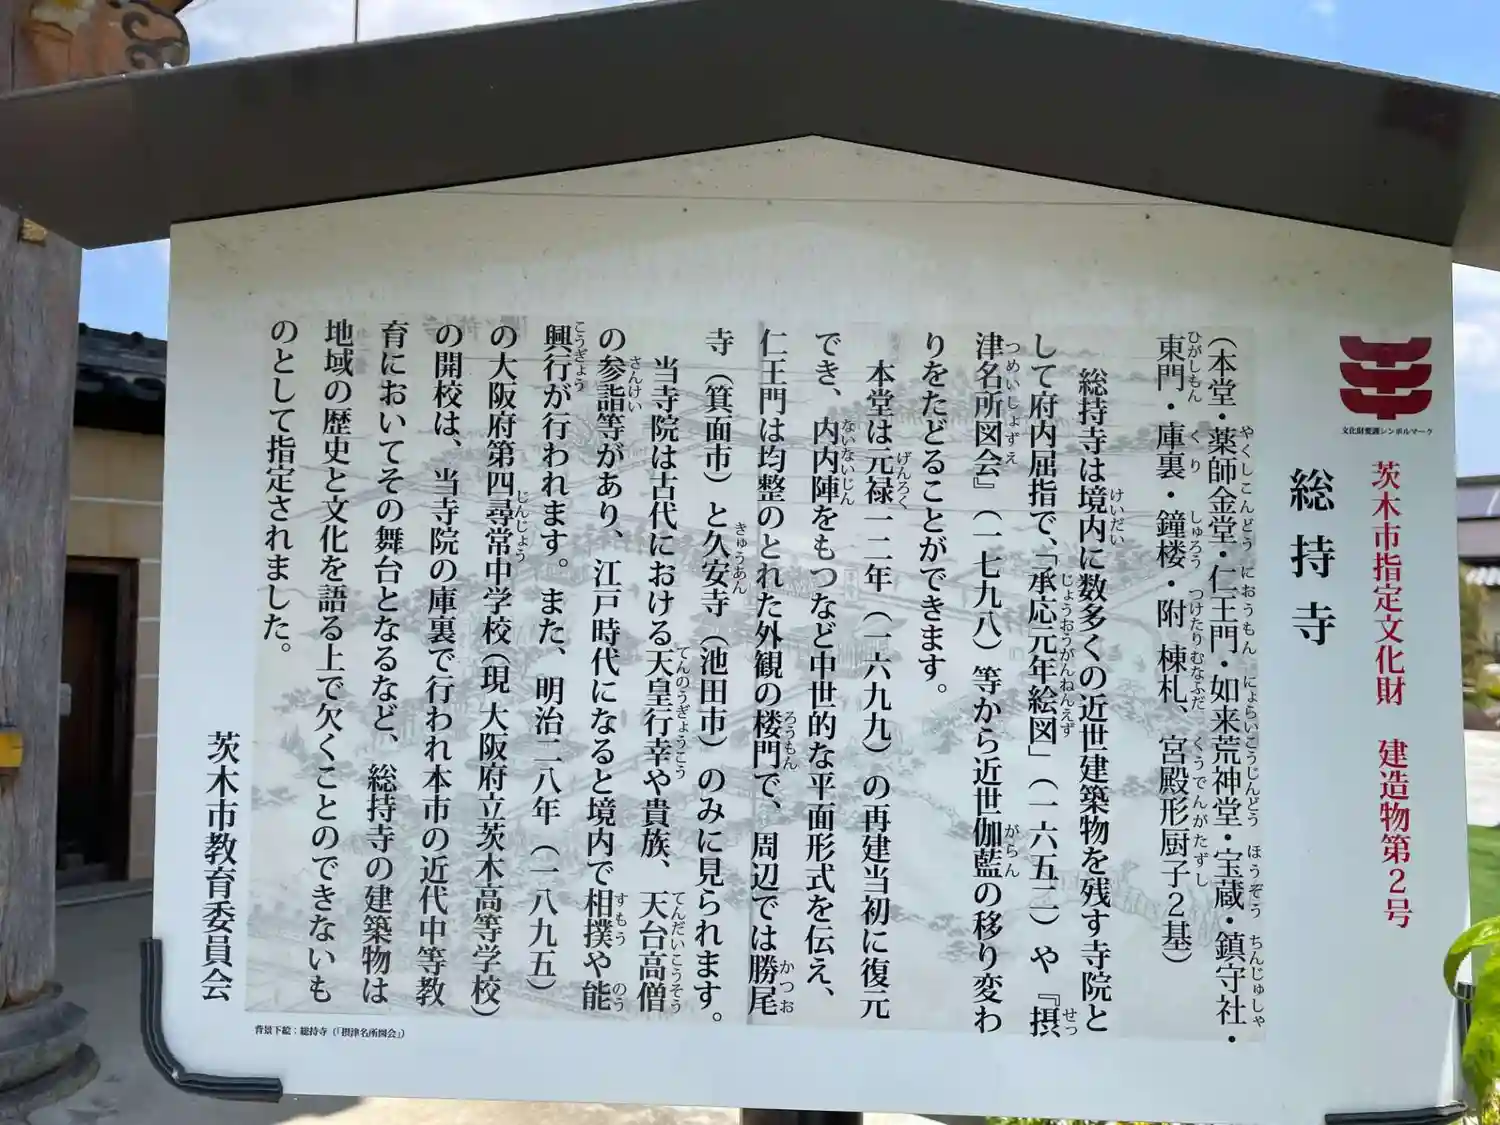 文化財愛護シンボルマーク
茨木市指定文化財　建造物第2号
総持寺
（本堂・薬師金堂・仁王門・如来荒神堂・宝蔵・鎮守社・
東門・庫裏・鐘楼・附 棟札、宮殿形厨子2基）
総持寺は境内に数多くの近世建築物を残す寺院と
して府内屈指で、「承応元年絵図」（一六五二）や『摂
津名所図会』（一七九八）等から近世伽藍の移り変わ
りをたどることができます。
本堂は元禄一二年（一六九九）の再建当初に復元
でき、内内陣をもつなど中世的な平面形式を伝え、
仁王門は均整のとれた外観の楼門で、周辺では勝尾
寺（箕面市）と久安寺（池田市）のみに見られます。
当寺院は古代における天皇行幸や貴族、天台高僧
の参詣等があり、江戸時代になると境内で相撲や能
興行が行われます。また、明治二八年（一八九五）
の大阪府第四尋常中学校（現 大阪府立茨木高等学校）
の開校は、当寺院の庫裏で行われ本市の近代中等教
育においてその舞台となるなど、総持寺の建築物は
地域の歴史と文化を語る上で欠くことのできないも
のとして指定されました。
茨木市教育委員会
背景下絵：総持寺（「摂津名所図会」）